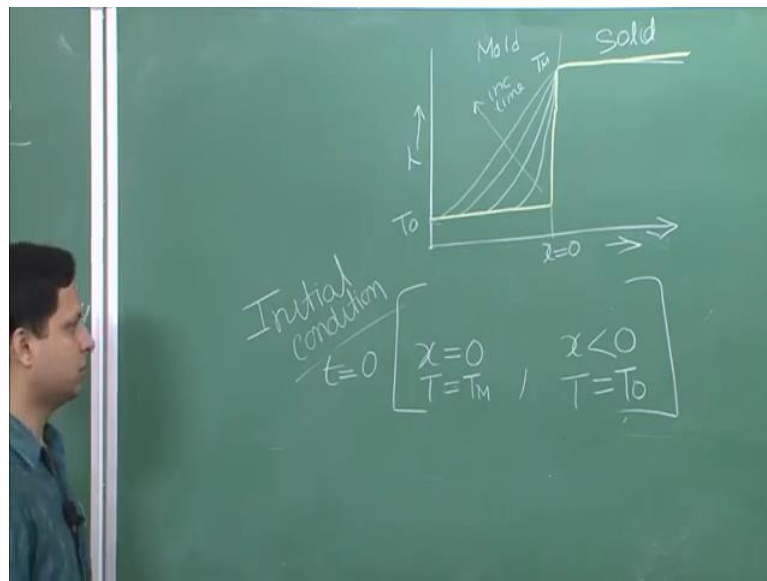 Mold Solid
TM
inc
time
T
T0
x=0
Initial
condition
t=0 [ x=0 , x<0 ]
T=TM T=T0